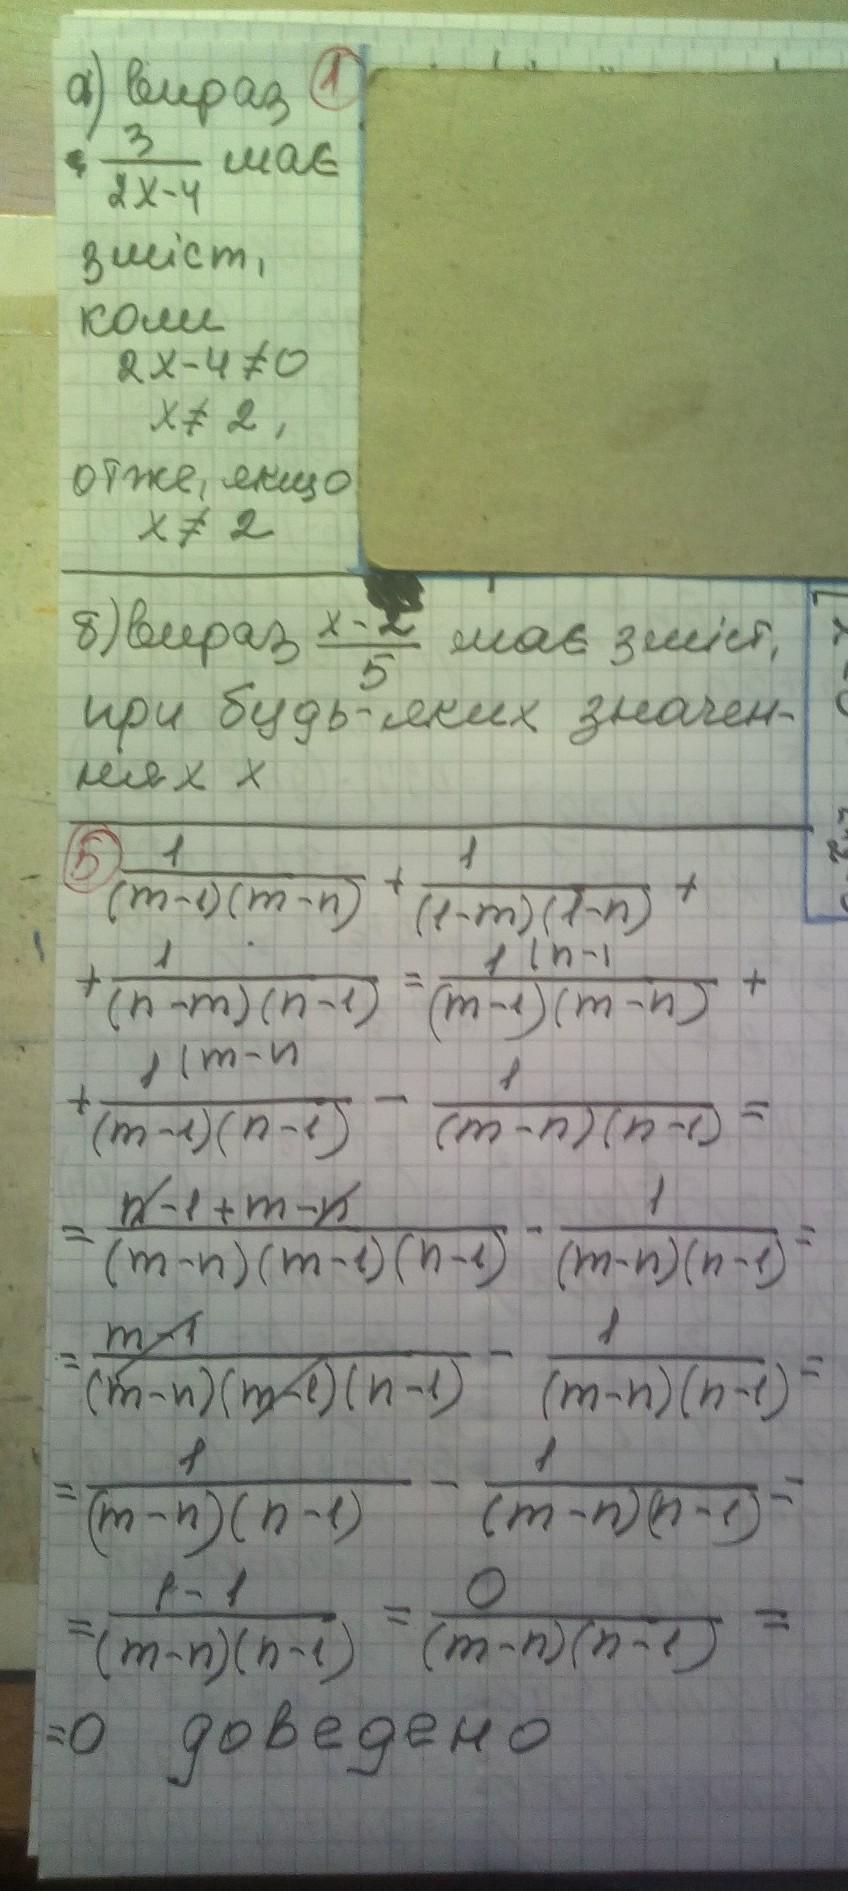 а) вираз ①
3/(2x-4) має
зміст,
коли
2x-4≠0
x≠2,
отже, якщо
x≠2
б) вираз (x-2)/5 має зміст,
при будь-яких значен-
нях x
⑤ 1/((m-1)(m-n)) + 1/((1-m)(1-n)) +
+ 1/((n-m)(n-1)) = 1 (n-1/((m-n)(m-1)) +
+ 1 (m-n/((m-1)(n-1)) - 1/((m-n)(n-1)) =
= (n-1+m-n)/((m-n)(m-1)(n-1)) - 1/((m-n)(n-1)) =
= (m-1)/((m-n)(m-1)(n-1)) - 1/((m-n)(n-1)) =
= 1/((m-n)(n-1)) - 1/((m-n)(n-1)) =
= (1-1)/((m-n)(n-1)) = 0/((m-n)(n-1)) =
=0 доведено